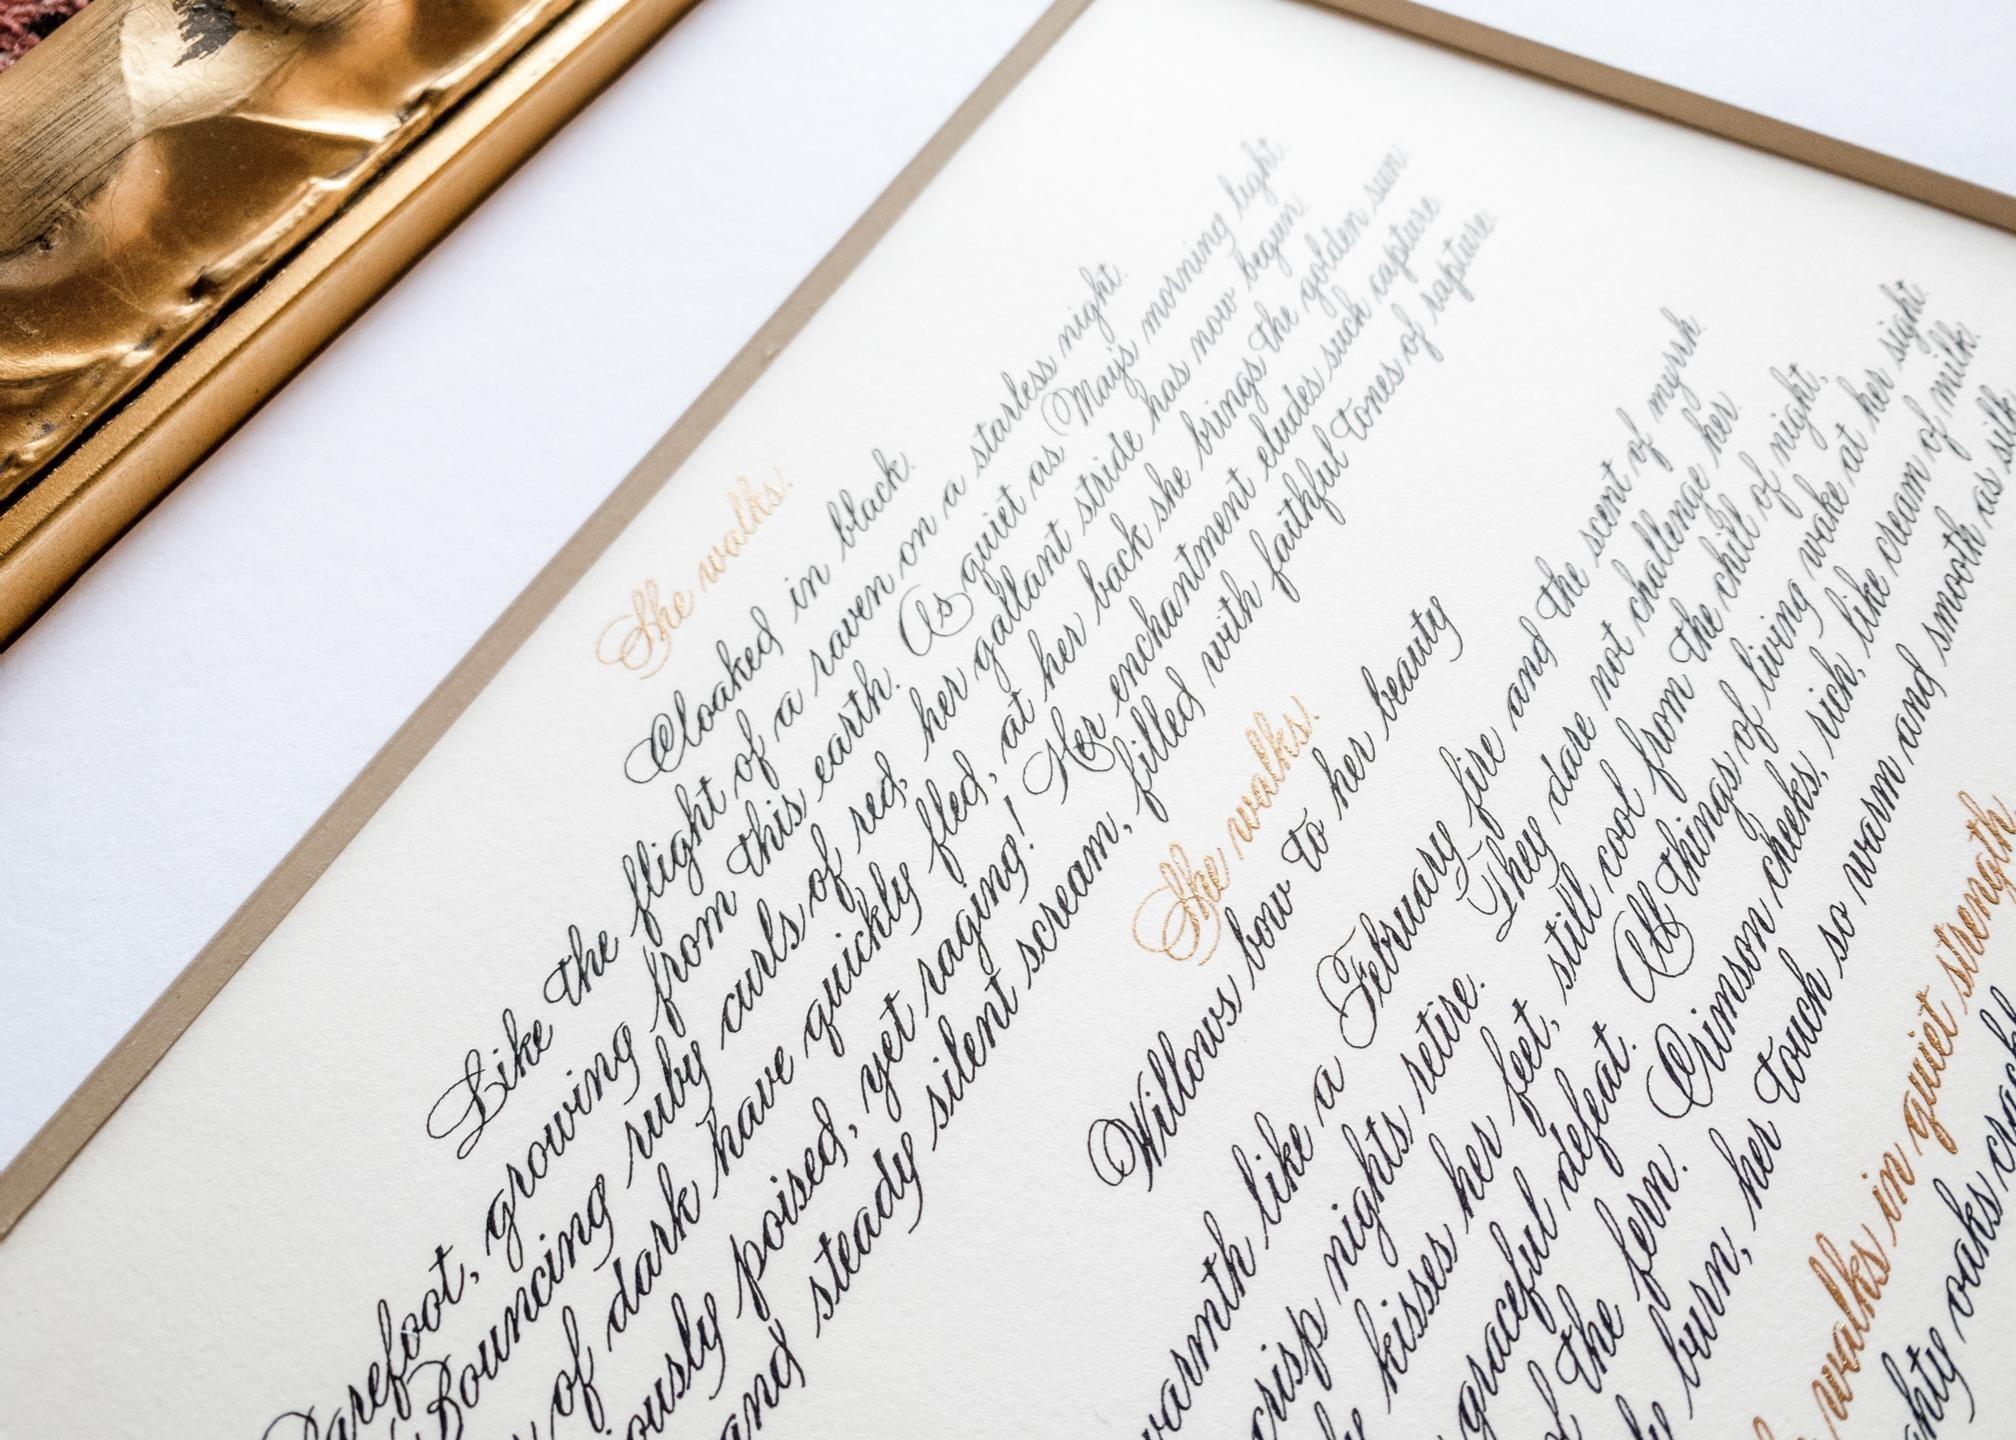 She walks.
Cloaked in black.
Like the flight of a raven on a starless night.
Barefoot, growing from this earth. As quiet as May's morning light.
Bouncing ruby curls of red, her gallant stride has now begun.
of dark have quickly fled, at her back she brings the golden sun.
ously poised, yet raging! Her enchantment eludes such capture.
and steady silent scream, filled with faithful tones of rapture.
She walks.
Willows bow to her beauty
warmth like a February fire and the scent of myrrh.
crisp nights retire. They dare not challenge her.
kisses her feet, still cool from the chill of night,
graceful defeat. All things of living wake at her sight.
of the fern. Crimson cheeks, rich, like cream of milk.
burn, her touch so warm and smooth as silk
walks in quiet strength
ghty oaks